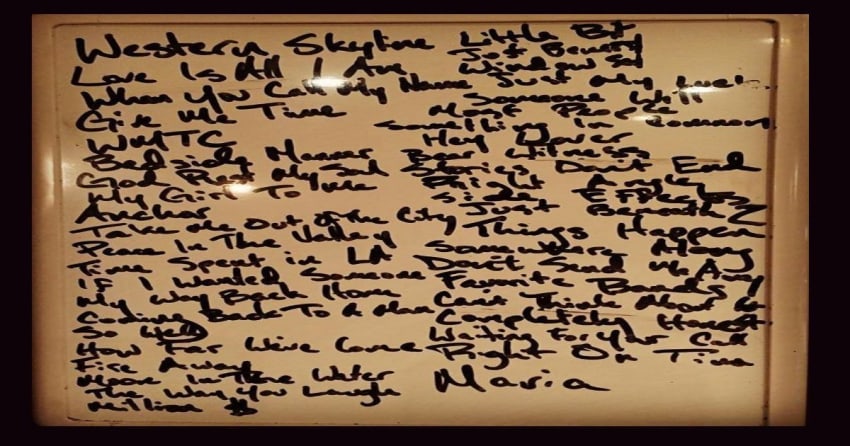 Western Skyline
Love Is All I Am
When You Call My Name
Give Me Time
WMTC
Bedside Manner
God Rest My Soul
My Girl To Me
Anchor
Take Me Out Of The City
Peace In The Valley
Time Spent in LA
If I Wanted Someone
My Way Back Home
Coming Back To A Man
So Well
How Far We've Come
Fire Away
Moon In The Water
The Way You Laugh
Million $
Little Bit
Just Beneath
Window Sill
Just My Luck
Someone Will
Most People
Something In Common
Hey Lover
Bear Witness
Stories Don't End
Right Angle
Side Effects
Just Beneath
Things Happen
Somewhere Along
Don't Send Me Away
Favorite Bands
Can't Think About It
Completely Honest
Waiting For Your Call
Right On Time
Maria